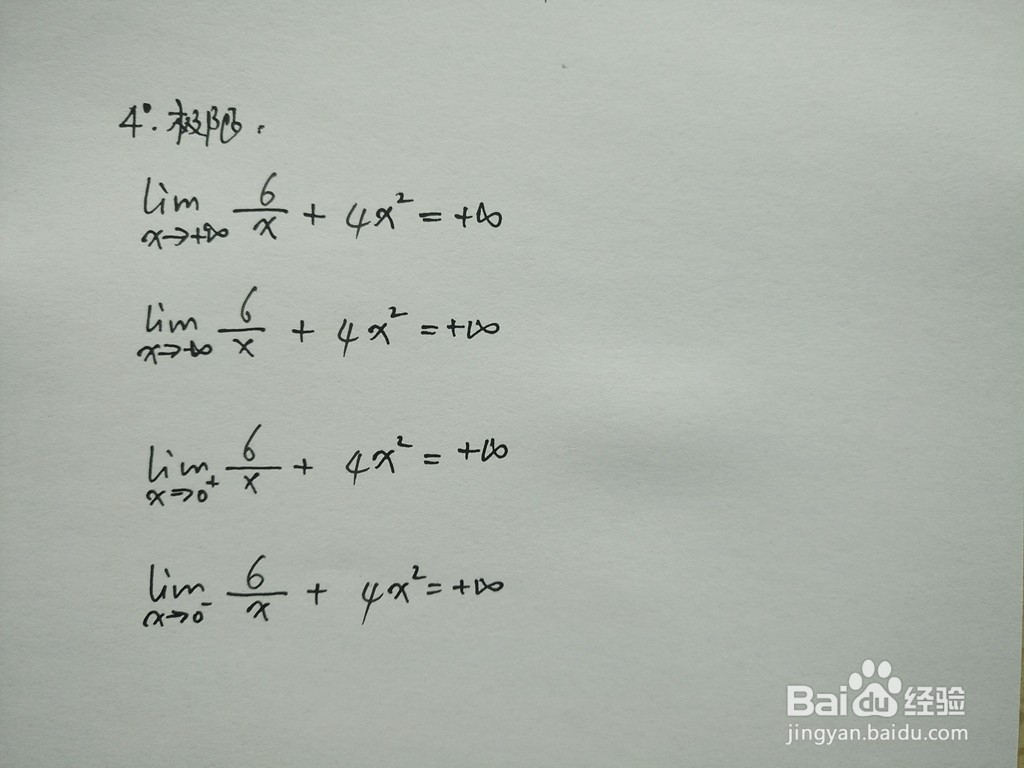 4°. 极限.
lim x→+∞ 6/x + 4x² = +∞
lim x→-∞ 6/x + 4x² = +∞
lim x→0⁺ 6/x + 4x² = +∞
lim x→0⁻ 6/x + 4x² = +∞
Baidu 经验
jingyan.baidu.com